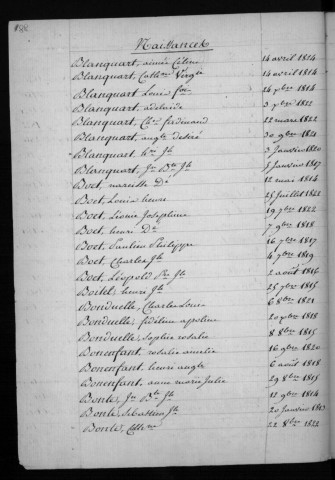 Naissances
Blanquart, aimée Céline 14 avril 1814
Blanquart, Cath.ne Virg.ie 14 avril 1814
Blanquart Louis f.ois 24 7bre 1814
Blanquart, adelaide 3 7bre 1821
Blanquart, Ch.les ferdinand 22 mars 1822
Blanquart, aug.te désiré 30 9bre 1821
Blanquart, h.ri J.h 3 Janvier 1820
Blanquart, J.n B.te J.h 5 Janvier 1817
Boet, narcisse D.é 12 mai 1814
Boet, Louis henri 25 Juillet 1822
Boet, Louise Josephine 19 7bre 1822
Boet, henri D.é 7 9bre 1818
Boet, Paulin Philippe 16 7bre 1817
Boet, Charles J.h 4 7bre 1819
Boet, Léopold J.h 2 août 1816
Boitel, henri J.h 25 7bre 1815
Bonduelle, Charles Louis 6 8bre 1821
Bonduelle, fidéline apoline 20 7bre 1818
Bonduelle, Sophie rosalie 8 8bre 1815
Bonenfant, rosalie amelie 16 9bre 1820
Bonenfant, henri aug.te 6 août 1818
Bonenfant, anne marie Julie 29 8bre 1815
Bonte, J.n B.te J.h 12 9bre 1814
Bonte, Sébastien J.h 20 Janvier 1813
Bonte, 22 8bre 1822